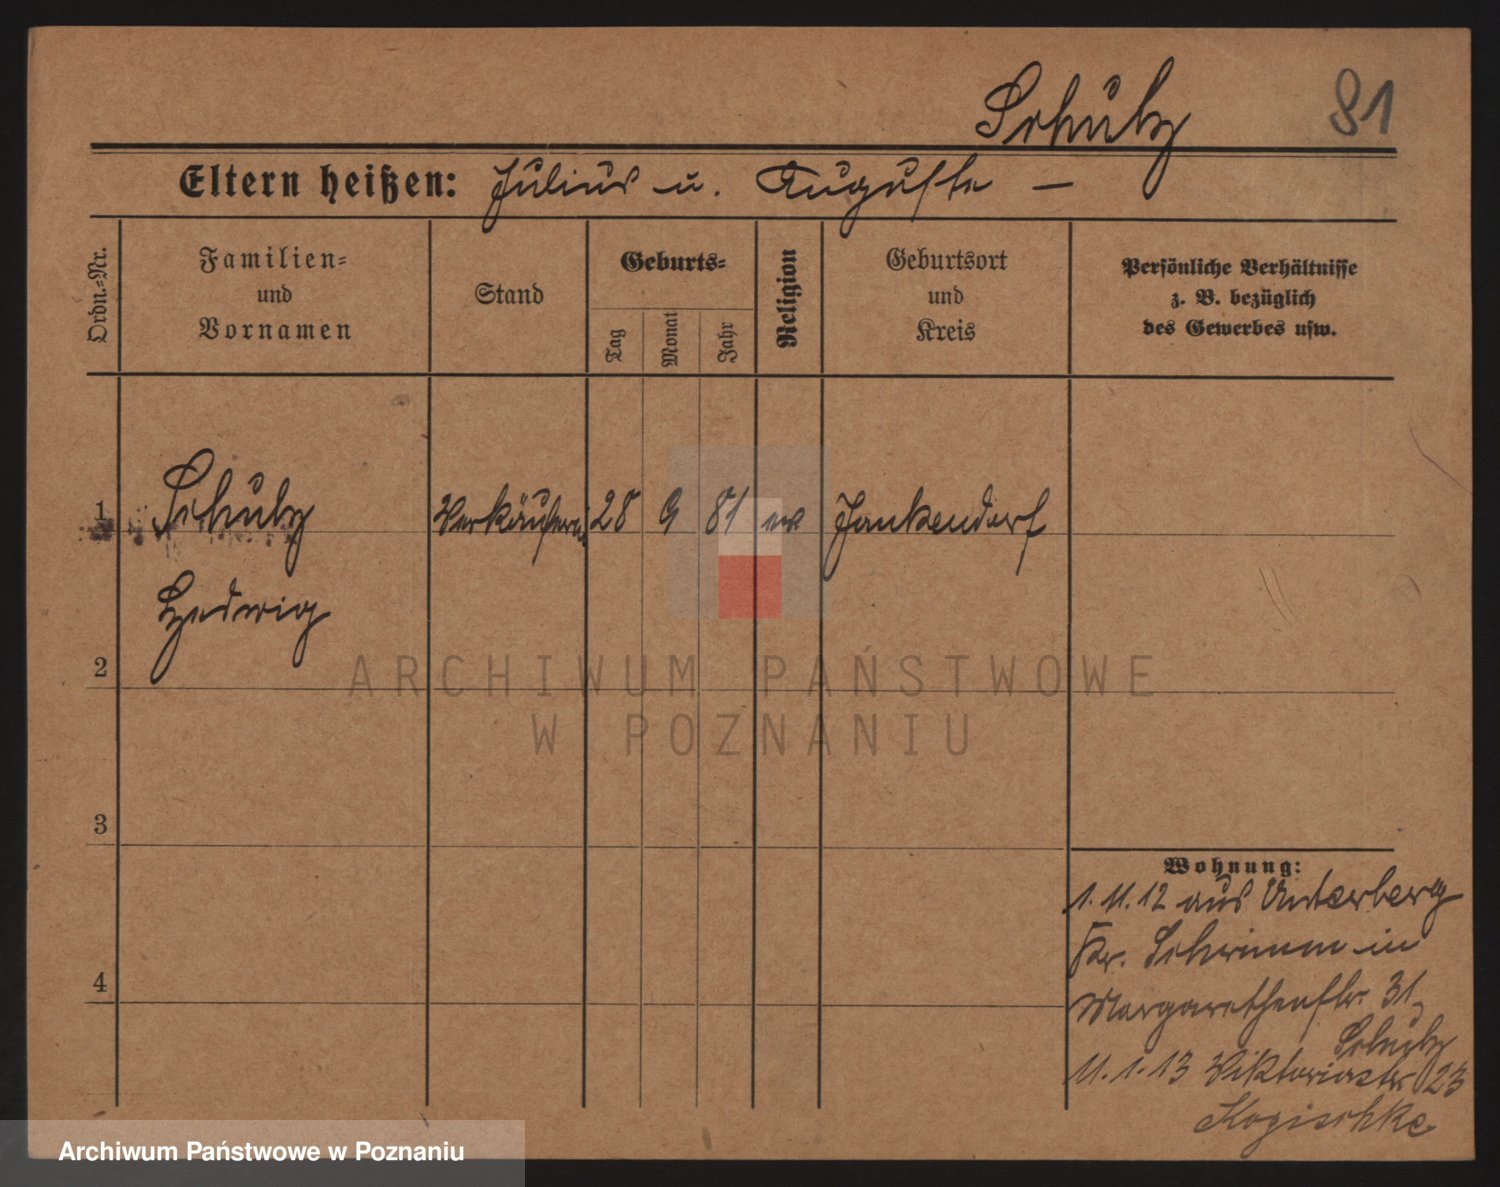 Schulz 81
Eltern heißen: Julius u. Auguste —
Ordn.-Nr.
Familien-
und
Vornamen
Stand
Geburts-
Tag
Monat
Jahr
Religion
Geburtsort
und
Kreis
Persönliche Verhältnisse
z. B. bezüglich
des Gewerbes usw.
1 Schulz Verkäuferin 28 9 81 ev Jankendorf
Hedwig
2
ARCHIWUM PAŃSTWOWE
W POZNANIU
3
Wohnung:
1.11.12 aus Unterberg
Kr. Schrimm in
4
Margarethenstr. 31,
Schulz
11.1.13 Viktoriastr 23
Kogischke
Archiwum Państwowe w Poznaniu